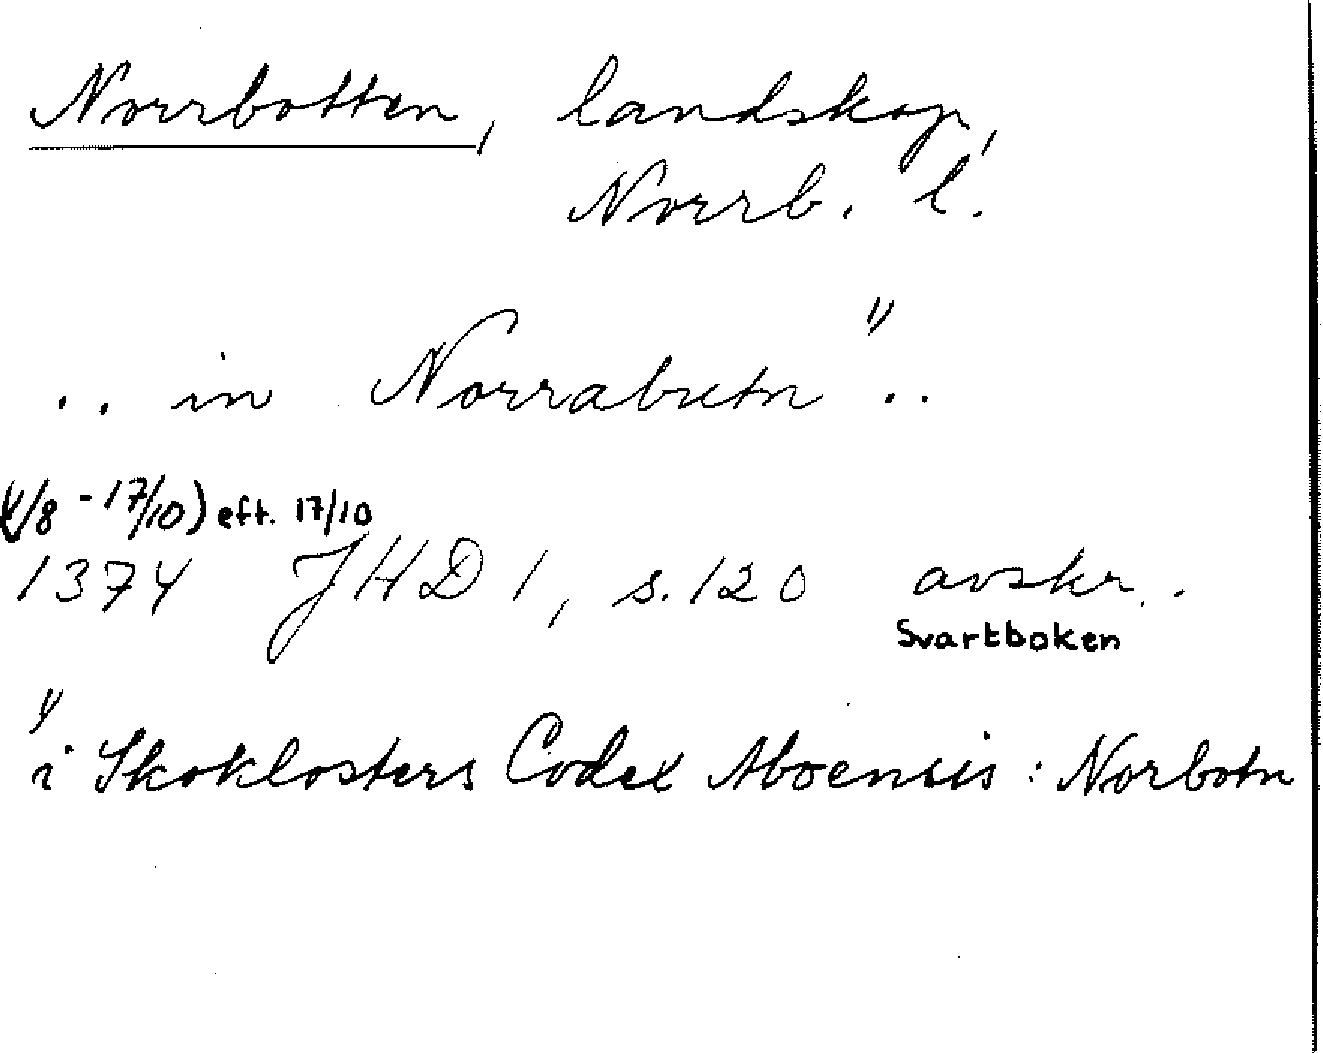 Norrbotten, landskap,
Norrb. l.
.. in Norrabutn" ..
/8 - 17/10) eft. 17/10
1374 JHD 1, s. 120 avskr..
Svartboken
" i Skoklosters Codex Aboensis : Norbotn